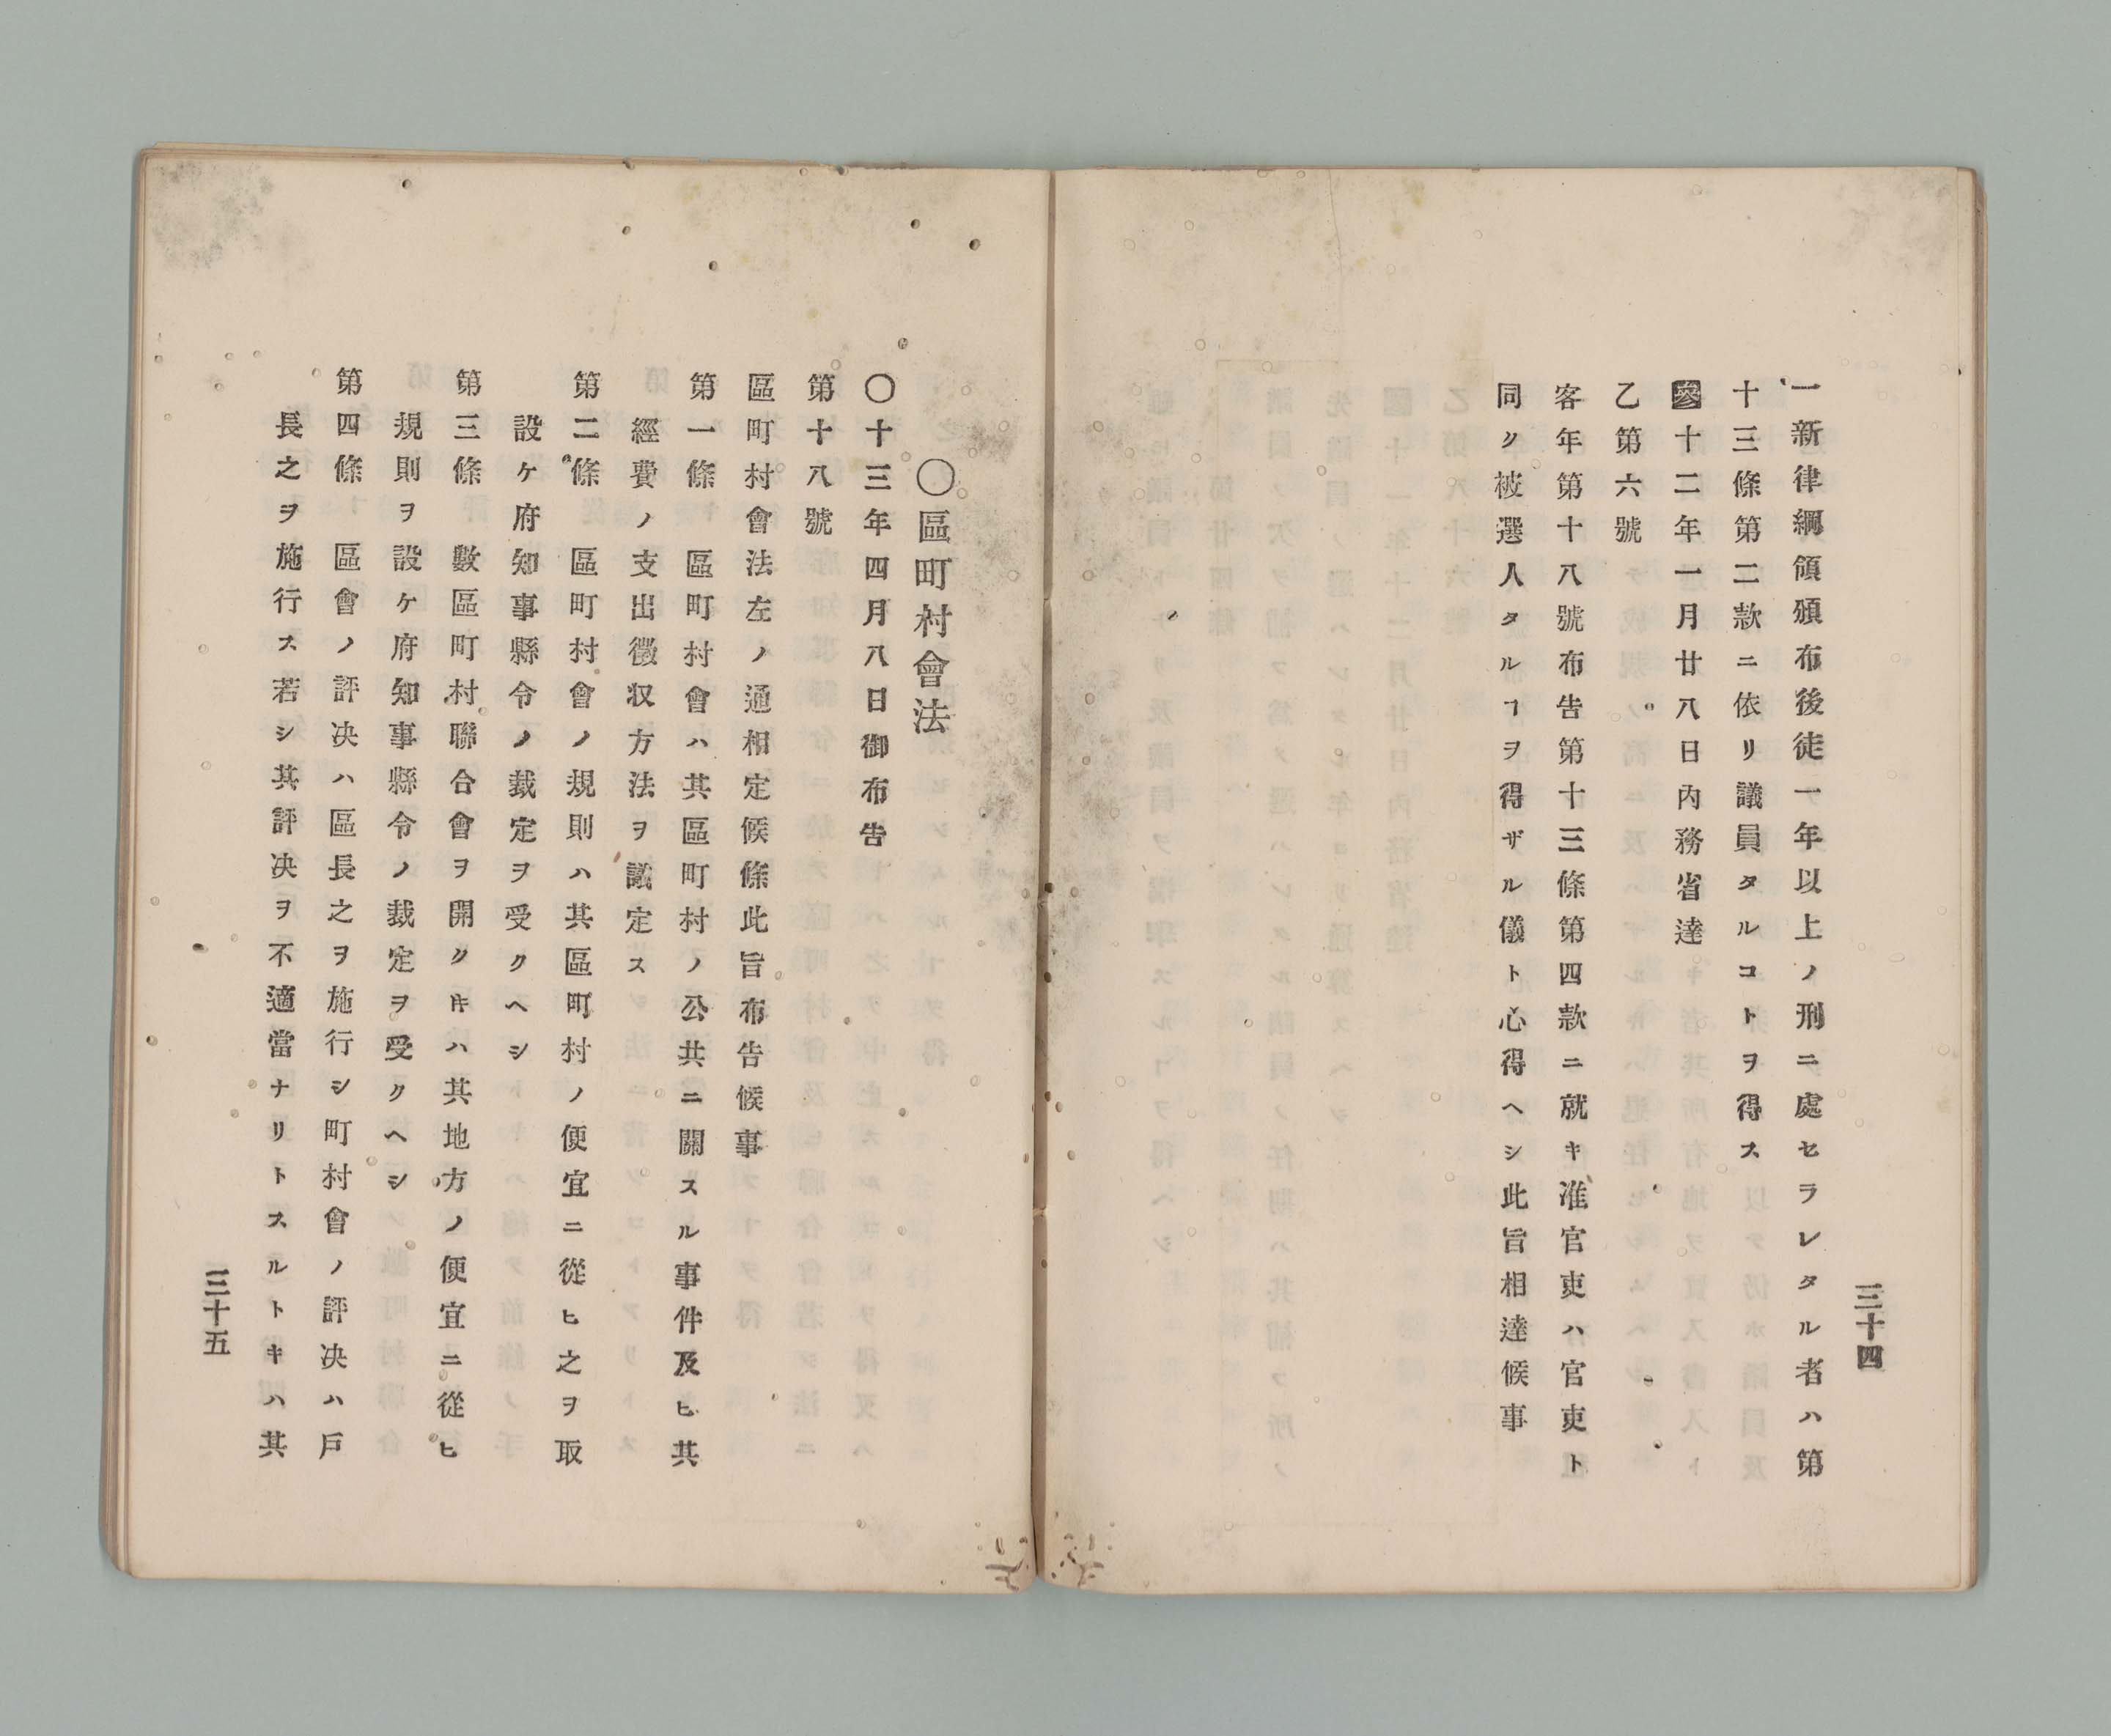 三十四
一新律綱領頒布後徒一年以上ノ刑ニ處セラレタル者ハ第
十三條第二款ニ依リ議員タルコトヲ得ス
參十二年一月廿八日內務省達
乙第六號
客年第十八號布告第十三條第四款ニ就キ准官吏ハ官吏ト
同ク被選人タルヿヲ得ザル儀ト心得ヘシ此旨相達候事
〇區町村會法
〇十三年四月八日御布告
第十八號
區町村會法左ノ通相定候條此旨布告候事
第一條 區町村會ハ其區町村ノ公共ニ關スル事件及ヒ其
經費ノ支出徵収方法ヲ議定ス
第二條 區町村會ノ規則ハ其區町村ノ便宜ニ從ヒ之ヲ取
設ケ府知事縣令ノ裁定ヲ受クヘシ
第三條 數區町村聯合會ヲ開クキハ其地方ノ便宜ニ從ヒ
規則ヲ設ケ府知事縣令ノ裁定ヲ受クヘシ
第四條 區會ノ評决ハ區長之ヲ施行シ町村會ノ評决ハ戶
長之ヲ施行ス若シ其評决ヲ不適當ナリトスルトキハ其
三十五